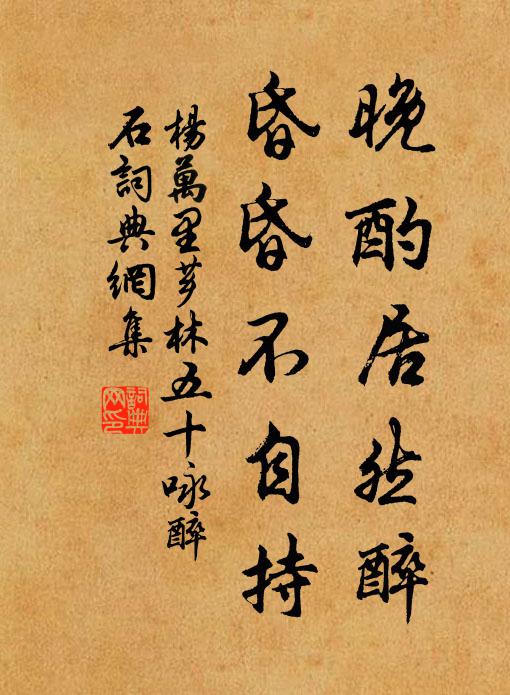 晚酌居然醉
昏昏不自持
楊萬里芗林五十咏醉
石詞典網集
詞典
网印